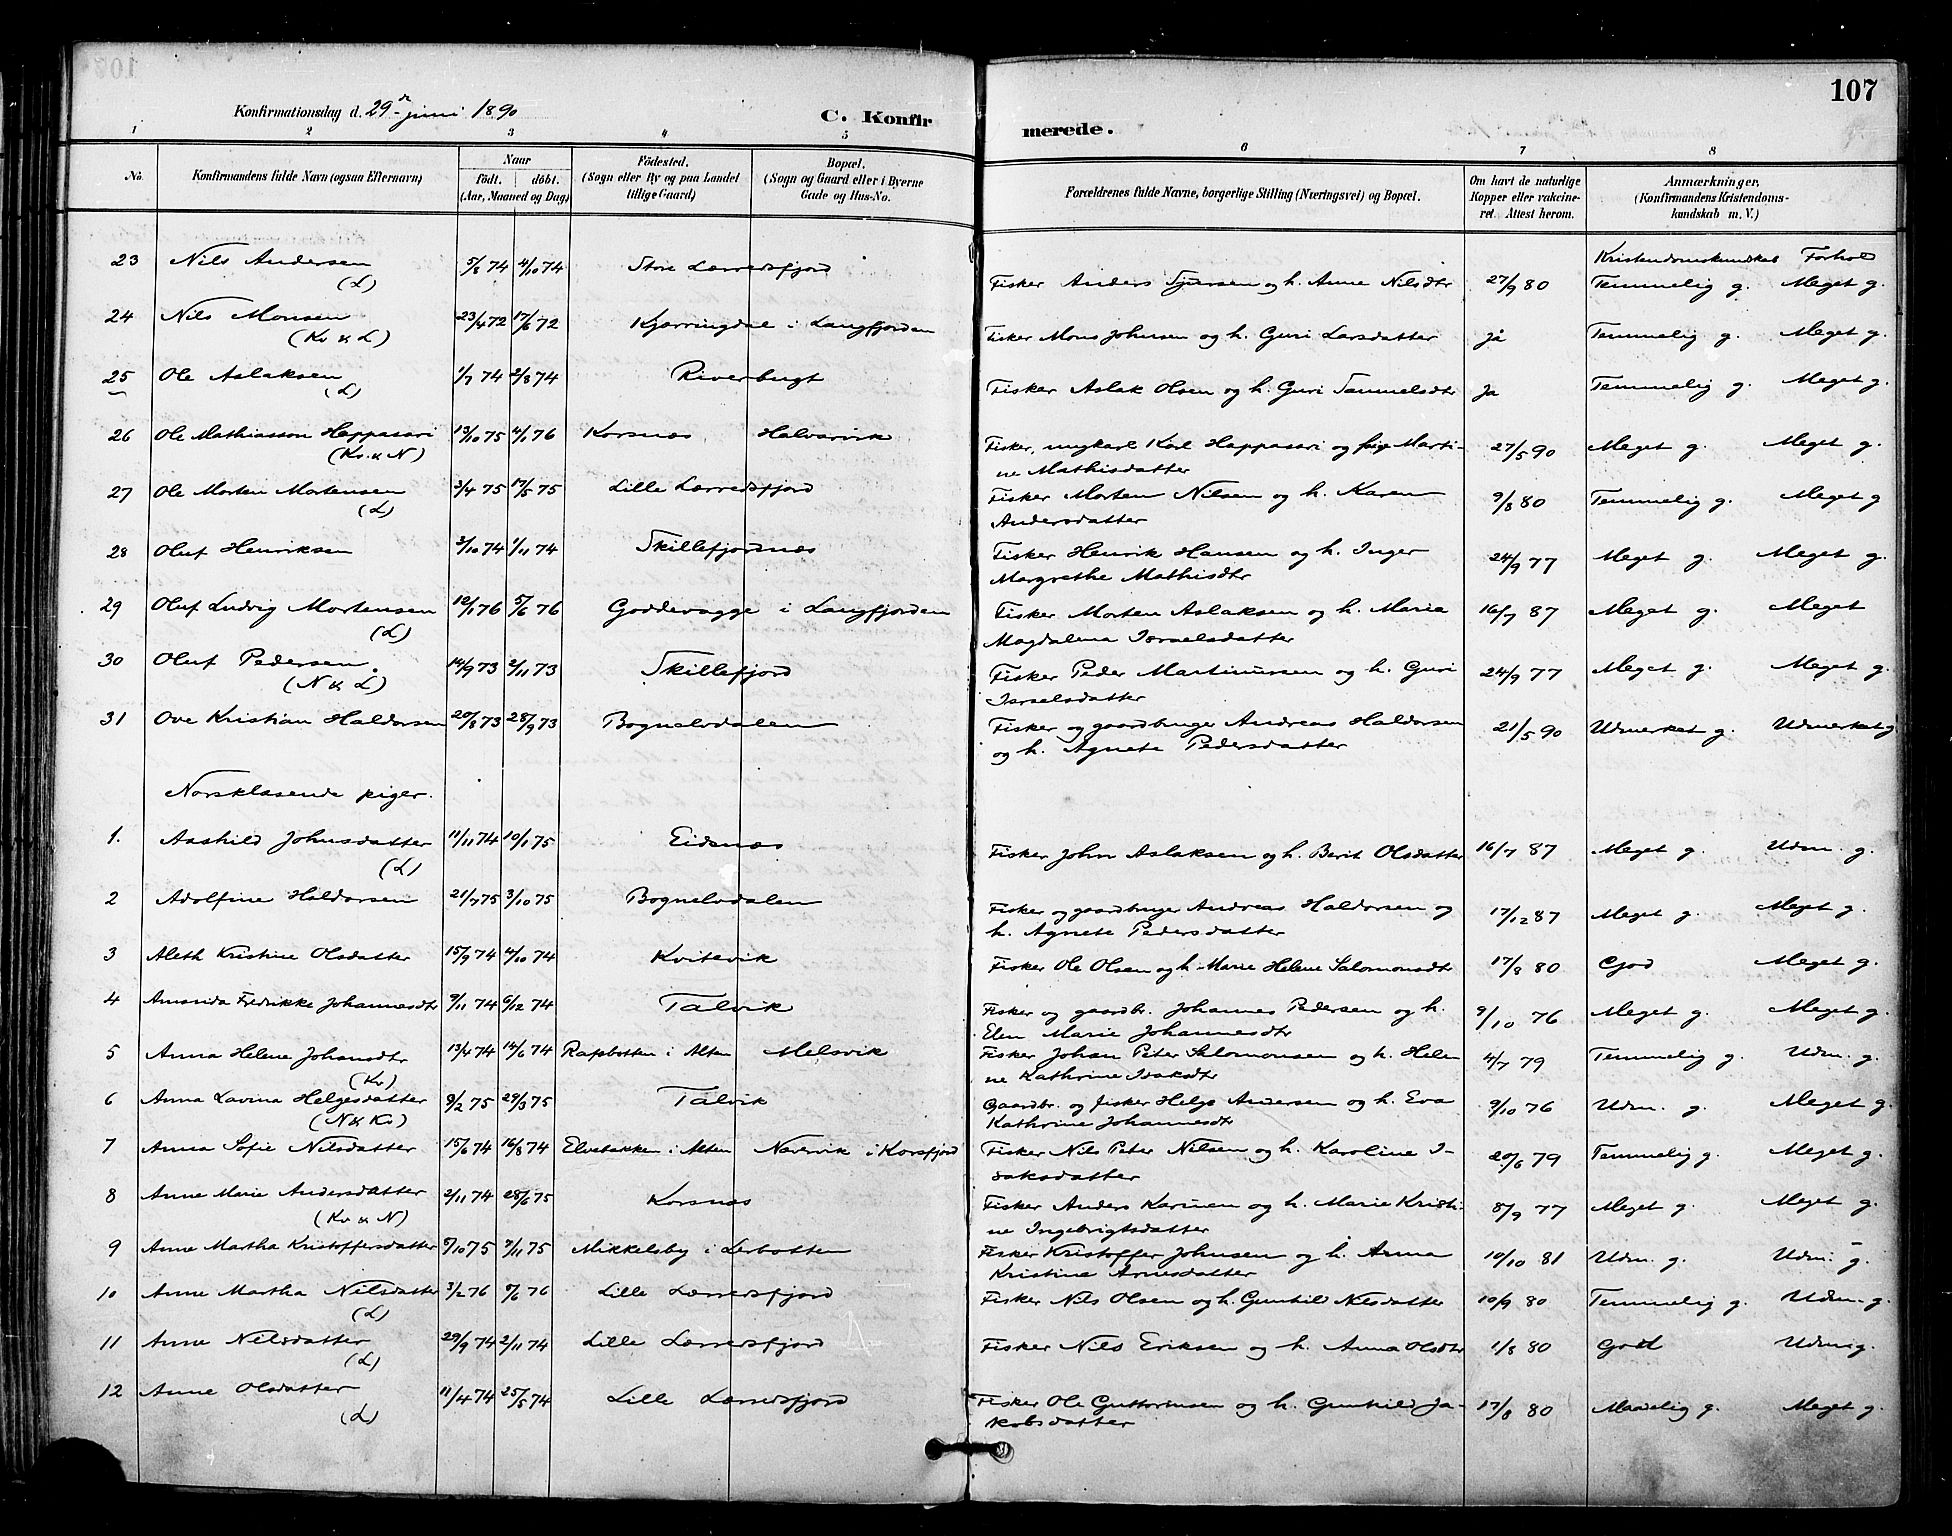 107
Konfirmationsdag d. 29de juni 1890
C. Konfirmerede.
1 2 3 4 5 6 7 8
No. Konfirmandens fulde Navn (ogsaa Efternavn) Naar födt. döbt. (Aar, Maaned og Dag) Födested. (Sogn eller By og paa Landet tillige Gaard) Bopæl. (Sogn og Gaard eller i Byerne Gade og Hus-No. Forældrenes fulde Navne, borgerlige Stilling (Næringsvei) og Bopæl. Om havt de naturlige Kopper eller vakcineret. Attest herom. Anmærkninger. (Konfirmandens Kristendomskundskab m. V.)
Kristendomskundskab Forhold
23 Nils Andersen (L) 5/8 74 4/10 74 Store Lerredsfjord Fisker Anders Sjursen og h. Anne Nilsdtr 27/9 80 Temmelig g. Meget g.
24 Nils Monsen (Kv & L) 23/4 72 17/6 72 Kjerringdal i Langfjorden Fisker Mons Johnsen og h. Guri Larsdatter Ja Temmelig g. Meget g.
25 Ole Aslaksen (L) 1/7 74 2/8 74 Riverbugt Fisker Aslak Olsen og h. Guri Sammelsdtr Ja Temmelig g. Meget g.
26 Ole Mathiasson Happasari (Kv. & N) 13/10 75 4/1 76 Korsnæs Halvarvik Fisker, ungkarl Karl Happasari og pige Marti-
ne Mathisdatter 27/5 90 Meget g. Meget g.
27 Ole Morten Mortensen (L) 3/4 75 17/5 75 Lille Lerredsfjord Fisker Morten Nilsen og h. Karen
Andersdatter 9/8 80 Temmelig g. Meget g
28 Oluf Henriksen 3/10 74 1/11 74 Skillefjordnæs Fisker Henrik Hansen og h. Inger
Margrethe Mathisdtr 24/9 77 Meget g. Meget g.
29 Oluf Ludvig Mortensen (L) 12/1 76 5/6 76 Goddevagge i Langfjorden Fisker Morten Aslaksen og h. Maria
Magdalena Israelsdatter 16/7 87 Meget g. Meget
30 Oluf Pedersen. (N & L) 14/9 73 2/11 73 Skillefjord Fisker Peder Martinussen og h. Guri
Israelsdatter 24/9 77 Meget g. Meget g.
31 Ove Kristian Haldorsen 20/8 73 28/9 73 Bognelvdalen Fisker og gaardbruger Andreas Haldorsen
og h. Agnete Pedersdatter 21/5 90 Udmerket g. Udmerket g
Norsklæsende piger.
1. Aashild Johnsdatter (L) 11/11 74 10/1 75 Eidsnæs Fisker John Aslaksen og h. Berit Olsdatter 16/7 87 Meget g. Udm. g.
2 Adolfine Haldorsen 21/7 75 3/10 75 Bognelvdalen Fisker og gaardbruger Andreas Haldorsen og
h. Agnete Pedersdatter 17/12 87 Meget g. Meget g.
3 Aleth Kristine Olsdatter 15/9 74 4/10 74 Kvitevik Fisker Ole Olsen og h. Marie Helene Salomonsdtr 17/8 80 God Meget g.
4 Amanda Fredrikke Johannesdtr 9/11 74 6/12 74 Talvik Fisker og gaardbr. Johannes Pedersen og h.
Elen Marie Johannesdtr 9/10 76 Meget g. Meget g.
5 Anna Helene Johansdtr (Kv) 13/4 74 14/6 74 Rafsbotten i Alten Melsvik Fisker Johan Peter Salomonsen og h. Hele-
ne Kathrine Isaksdtr 4/7 79 Temmelig g. Udm. g.
6 Anna Lavina Helgesdatter (N & Kv) 9/2 75 29/3 75 Talvik Gaardbr. og fisker Helge Andersen og h. Eva
Kathrine Johannesdtr 9/10 76 Udm. g. Meget g.
7 Anna Sofie Nilsdatter 15/6 74 16/8 74 Elvebakken i Alten Navervik i Korsfjord Fisker Nils Peter Nilsen og h. Karoline I-
saksdatter 20/6 79 Temmelig g. Meget g.
8 Anne Marie Andersdatter (Kv & N) 2/11 74 28/6 75 Korsnæs Fisker Anders Karinen og h. Marie Kristi-
ne Ingebrigtsdatter 8/9 77 Meget g. Meget g.
9 Anne Martha Kristoffersdatter 5/10 75 7/11 75 Mikkelsby i Lerbotten Fisker Kristoffer Johnsen og h. Anna
Kristine Arnesdatter 10/10 81 Udm. g. Udm. g.
10 Anne Martha Nilsdatter (L) 3/2 76 5/6 76 Lille Lerredsfjord Fisker Nils Olsen og h. Gunhild Nilsdatter 10/9 80 Temmelig g. Udm. g.
11 Anne Nilsdatter (L) 29/9 74 2/11 74 Lille Lerredsfjord Fisker Nils Eriksen og h. Anna Olsdtr 1/8 80 Godt Udm g.
12 Anne Olsdatter (L) 11/4 74 25/5 74 Lille Lerredsfjord Fisker Ole Guttormsen og h. Gunhild Ja-
kobsdatter 17/8 80 Maadelig g. Meget g.